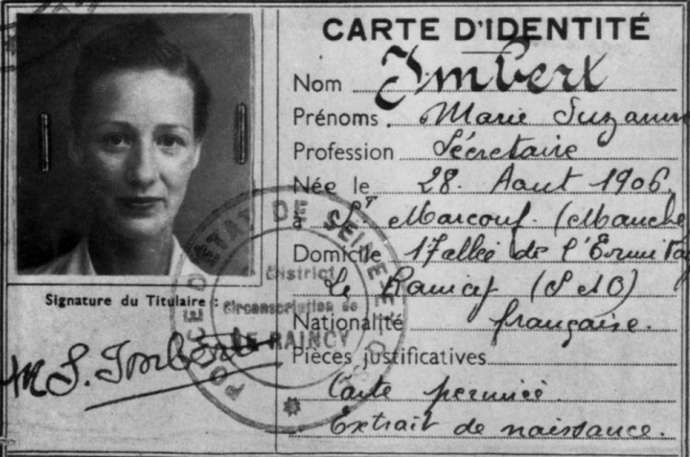 CARTE D'IDENTITÉ
Nom Imbert
Prénoms Marie Suzanne
Profession Sécretaire
Née le 28. Aout 1906.
à St Marcouf. (Manche
Domicile 17 allée de l'Ermitag
Le Raincy (S & O)
Nationalité française.
Pièces justificatives
Carte
Extrait de naissance.
Signature du Titulaire :
M S. Imbert
POLICE D'ETAT DE SEINE ET
District
Circonscription de
LE RAINCY